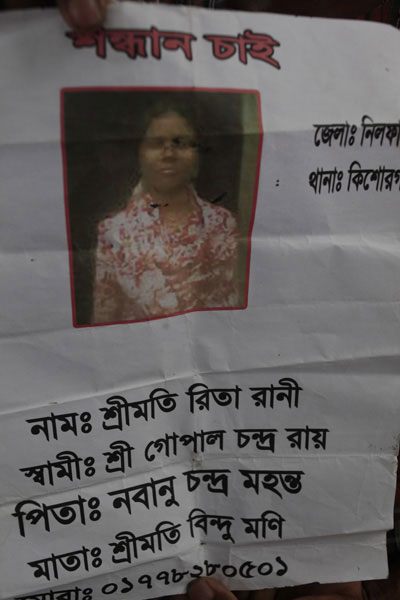 শন্ধান চাই
জেলাঃ নিলফা
থানাঃ কিশোরগ
নামঃ শ্রীমতি রিতা রানী
স্বামীঃ শ্রী গোপাল চন্দ্র রায়
পিতাঃ নবানু চন্দ্র মহন্ত
মাতাঃ শ্রীমতি বিন্দু মণি
০১৭৭৮২৮০৫০১